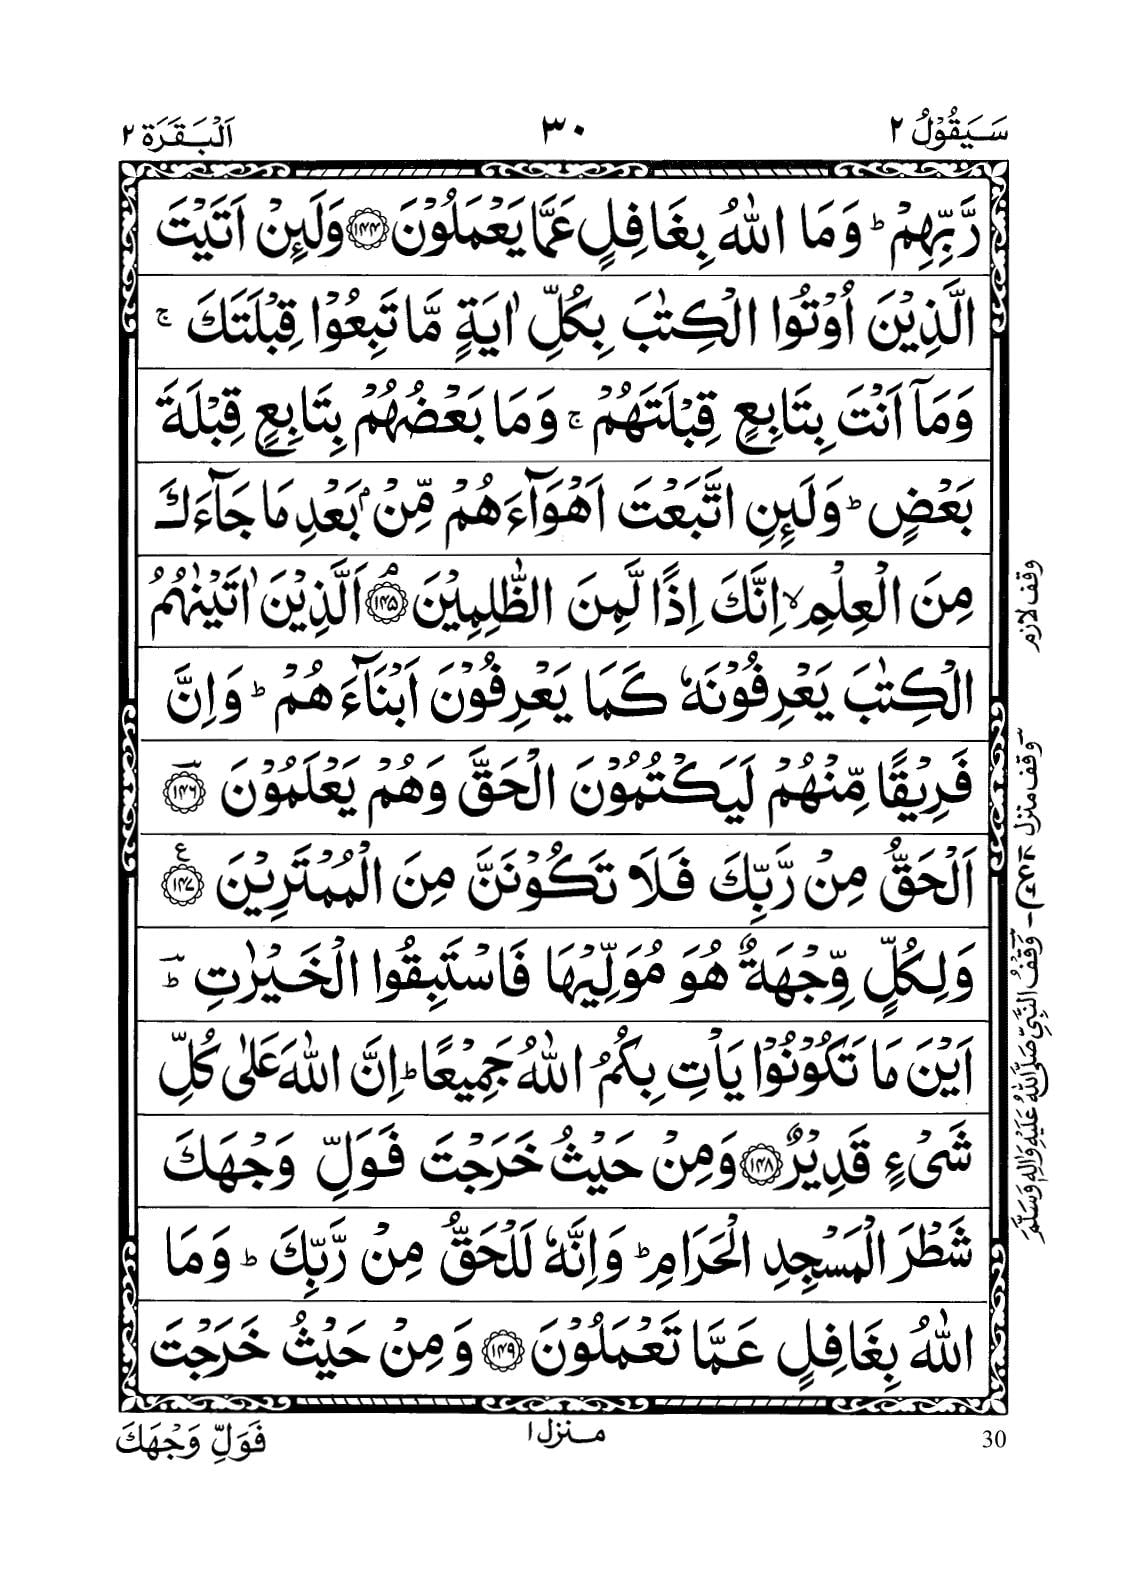 سَيَقُوْلُ ٢
٣٠
اَلْبَقَرَة ٢
رَّبِّهِمْ ؕ وَمَا اللّٰهُ بِغَافِلٍ عَمَّا يَعْمَلُوْنَ ﴿۱۴۴﴾ وَلَئِنْ اَتَيْتَ
الَّذِيْنَ اُوْتُوا الْكِتٰبَ بِكُلِّ اٰيَةٍ مَّا تَبِعُوْا قِبْلَتَكَ ۚ
وَمَاۤ اَنْتَ بِتَابِعٍ قِبْلَتَهُمْ ۚ وَمَا بَعْضُهُمْ بِتَابِعٍ قِبْلَةَ
بَعْضٍ ؕ وَلَئِنِ اتَّبَعْتَ اَهْوَآءَهُمْ مِّنْۢ بَعْدِ مَا جَآءَكَ
مِنَ الْعِلْمِ ۙ اِنَّكَ اِذًا لَّمِنَ الظّٰلِمِيْنَ ﴿۱۴۵﴾ۘ اَلَّذِيْنَ اٰتَيْنٰهُمُ
الْكِتٰبَ يَعْرِفُوْنَهٗ كَمَا يَعْرِفُوْنَ اَبْنَآءَهُمْ ؕ وَاِنَّ
فَرِيْقًا مِّنْهُمْ لَيَكْتُمُوْنَ الْحَقَّ وَهُمْ يَعْلَمُوْنَ ﴿۱۴۶﴾ؔ
اَلْحَقُّ مِنْ رَّبِّكَ فَلَا تَكُوْنَنَّ مِنَ الْمُمْتَرِيْنَ ﴿۱۴۷﴾ ع
وَلِكُلٍّ وِّجْهَةٌ هُوَ مُوَلِّيْهَا فَاسْتَبِقُوا الْخَيْرٰتِ ؕؔ
اَيْنَ مَا تَكُوْنُوْا يَاْتِ بِكُمُ اللّٰهُ جَمِيْعًا ؕ اِنَّ اللّٰهَ عَلٰى كُلِّ
شَىْءٍ قَدِيْرٌ ﴿۱۴۸﴾ وَمِنْ حَيْثُ خَرَجْتَ فَوَلِّ وَجْهَكَ
شَطْرَ الْمَسْجِدِ الْحَرَامِ ؕ وَاِنَّهٗ لَلْحَقُّ مِنْ رَّبِّكَ ؕ وَمَا
اللّٰهُ بِغَافِلٍ عَمَّا تَعْمَلُوْنَ ﴿۱۴۹﴾ وَمِنْ حَيْثُ خَرَجْتَ
وقف لازم
وقف منزل
وَقْفُ النَّبِيِّ صَلَّى اللّٰهُ عَلَيْهِ وَاٰلِهٖ وَسَلَّمَ
فَوَلِّ وَجْهَكَ
منزل ١
30